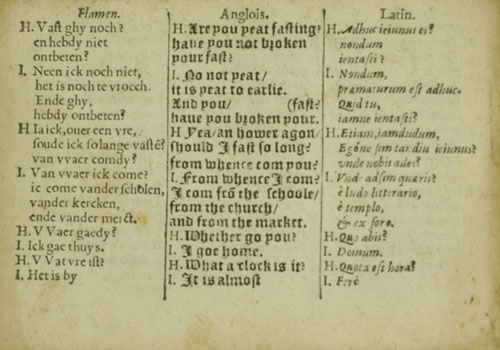 Flamen.
H. Vast ghy noch?
en hebdy niet
ontbeten?
I. Neen ick noch niet,
het is noch te vroech.
Ende ghy,
hebdy ontbeten?
H Ia ick, ouer een vre,
soude ick so lange vastẽ?
van vvaer comdy?
I. Van vvaer ick come?
ic come vander scholen,
vander kercken,
ende vander merct.
H. VVaer gaedy?
I. Ick gae thuys.
H. VVat vre ist?
I. Het is by
Anglois.
H. Are you peat fasting?
haue you not broken
your fast?
I. No not peat/
it is peat to earlie.
And you/ (fast?
haue you broken your.
H Yea/ an hower agon/
should I fast so long?
from whence com you?
I. From whence I come?
I com frõ the schoole/
from the church/
and from the market.
H. Whether go you?
I. I goe home.
H. What a clock is it?
I. It is almost
Latin.
H. Adhuc ieiunus es?
nondum
ientasti?
I. Nondum,
præmaturum est adhuc.
Quid tu,
iamne ientasti?
H. Etiam, iamdudum,
Egone sim tar diu ieiunus?
vnde nobis ades?
I. Vnde adsim quæris?
è ludo litterario,
è templo,
& ex foro.
H. Quo abis?
I. Domum.
H. Quota est hora?
I. Ferè